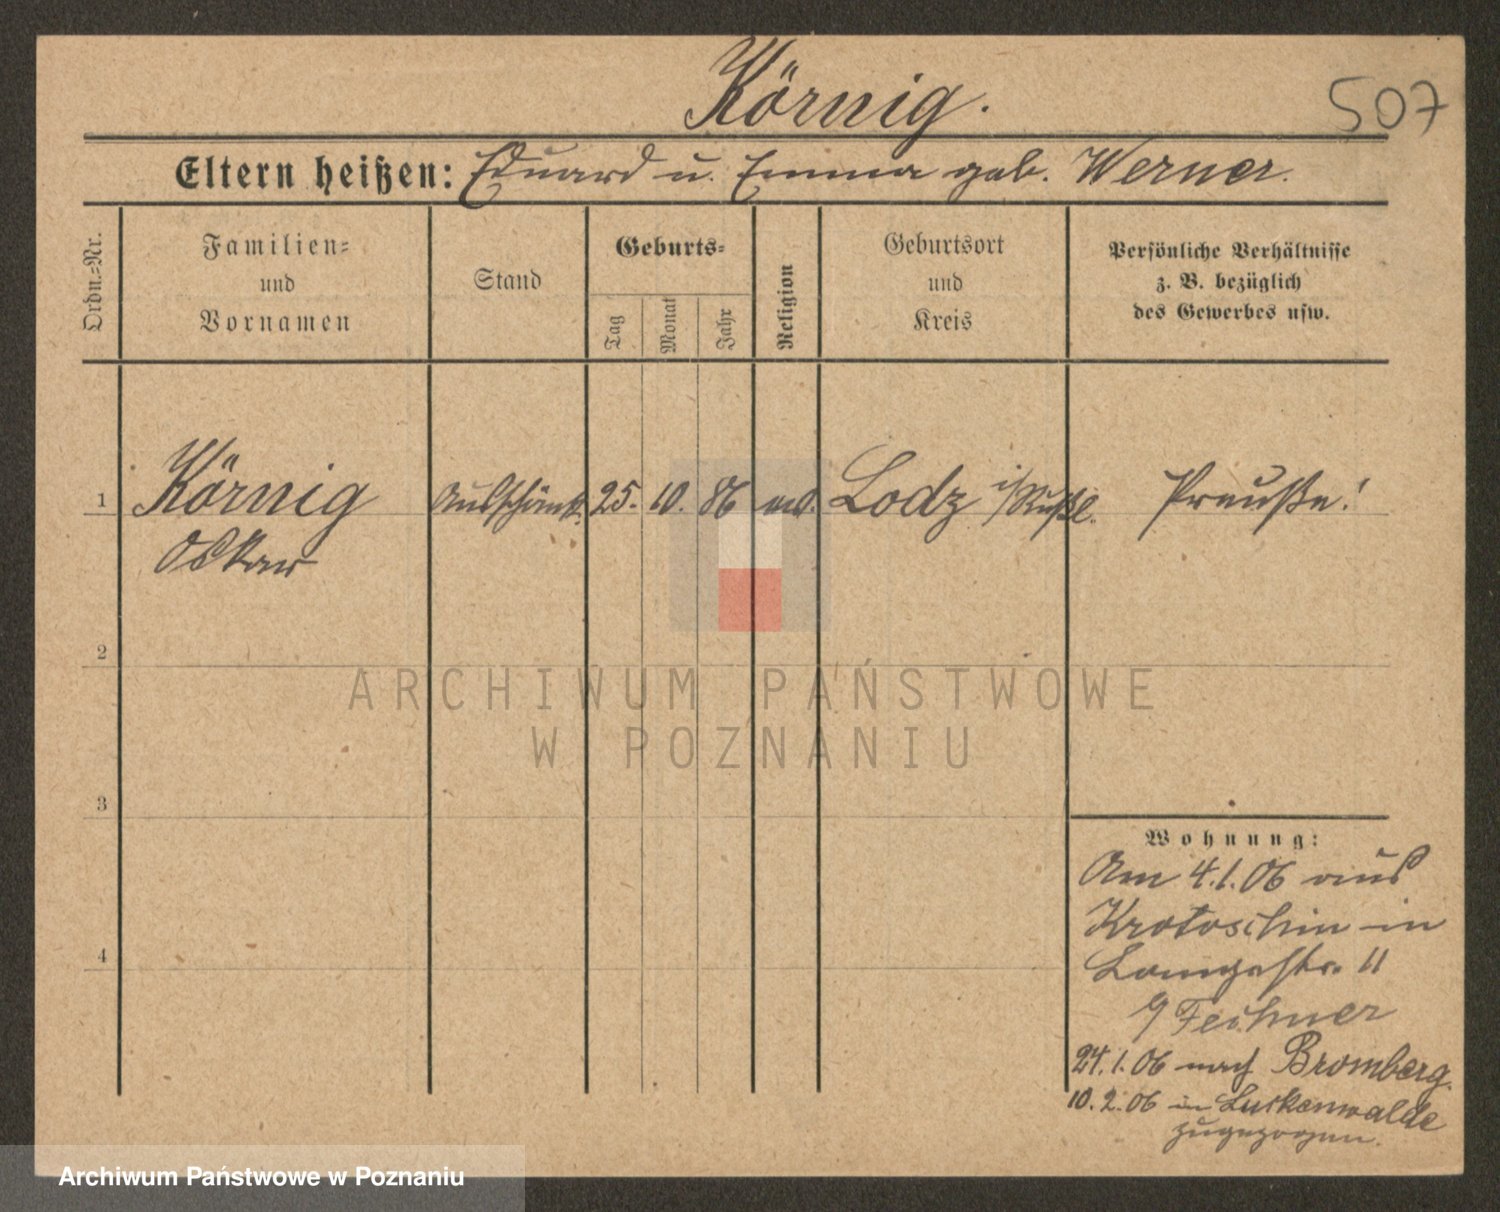 Körnig.
507
Eltern heißen: Eduard u. Emma geb. Werner.
Ordn.=Nr.
Familien=
und
Vornamen
Stand
Geburts=
Tag
Monat
Jahr
Religion
Geburtsort
und
Kreis
Persönliche Verhältnisse
z. B. bezüglich
des Gewerbes usw.
1 Körnig 25. 10. 86 Lodz i/Rußl. Preuße!
Oskar
2
ARCHIWUM PAŃSTWOWE
W POZNANIU
3
4
Wohnung:
Am 4.1.06 aus
Krotoschin in
Langestr. 11
Fechner
24.1.06 nach Bromberg.
10.2.06 in Luckenwalde
zugezogen.
Archiwum Państwowe w Poznaniu